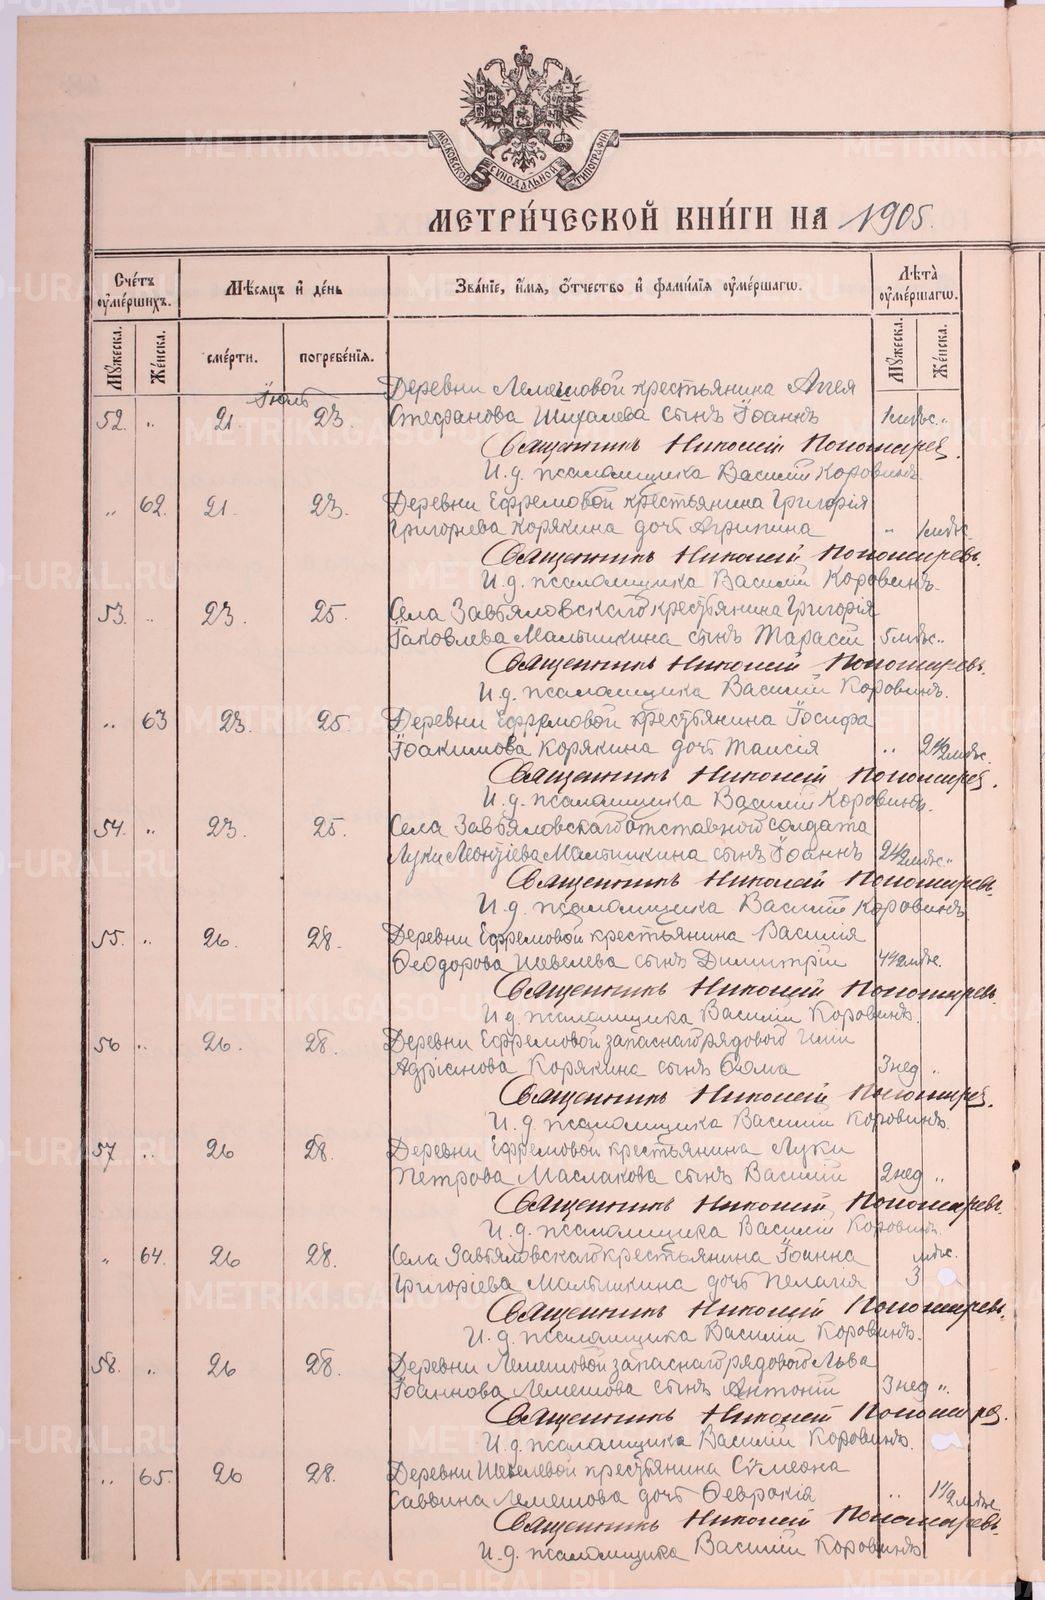 МОСКОВСКОЙ СѴНОДАЛЬНОЙ ТИПОГРАФІИ
МЕТРИ́ЧЕСКОЙ КНИ́ГИ НА 1905.
Сче́тъ ᲂу҆ме́ршихъ.
Мѣсяцъ и҆ де́нь
Зва́нїе, и҆́мя, ѻ҆́тчество и҆ фами́лїя ᲂу҆ме́ршагѡ.
Лѣта̀ ᲂу҆ме́ршагѡ.
Мꙋ́жеска. Же́нска. сме́рти. погребе́нїя. Мꙋ́жеска. Же́нска.
Іюль
Деревни Лемешовой крестьянина Аггея
52. " 21. 23. Стефанова Шихалева сынъ Іоаннъ 1 мѣс. "
Священникъ Николай Пономарев.
И. д. псаломщика Василій Коровинъ.
" 62. 21. 23. Деревни Ефремовой крестьянина Григорія
Григорьева Корякина дочь Агрипина " 1 мѣс.
Священникъ Николай Пономаревъ.
И. д. псаломщика Василій Коровинъ.
53. " 23. 25. Села Завьяловскаго крестьянина Григорія
Іаковлева Малышкина сынъ Тарасій 5 мѣс. "
Священникъ Николай Пономаревъ.
И. д. псаломщика Василій Коровинъ.
" 63 23. 25. Деревни Ефремовой крестьянина Іосифа
Іоакимова Корякина дочь Таисія " 2 1/2 мѣс.
Священникъ Николай Пономарев.
И. д. псаломщика Василій Коровинъ.
54. " 23. 25. Села Завьяловскаго отставного солдата
Луки Леонтіева Малышкина сынъ Іоаннъ 2 1/2 мѣс. "
Священникъ Николай Пономаревъ.
И. д. псаломщика Василій Коровинъ
55. " 26. 28. Деревни Ефремовой крестьянина Василія
Ѳеодорова Шевелева сынъ Димитрій 4 1/2 мѣс.
Священникъ Николай Пономаревъ.
И. д. псаломщика Василій Коровинъ.
56 " 26. 28. Деревни Ефремовой запаснаго рядового Иліи
Адріанова Корякина сынъ Ѳома 3 нед "
Священникъ Николай Пономарев.
И. д. псаломщика Василій Коровинъ.
57 " 26 28. Деревни Ефремовой крестьянина Луки
Петрова Маслакова сынъ Василій 2 нед "
Священникъ Николай Пономаревъ.
И. д. псаломщика Василій Коровинъ.
" 64. 26 28. Села Завьяловскаго крестьянина Іоанна мѣс.
Григоріева Малышкина дочь Пелагія 3
Священникъ Николай Пономаревъ.
И. д. псаломщика Василій Коровинъ.
58. " 26 28. Деревни Лемешовой запаснаго рядового Льва
Іоаннова Лемешова сынъ Антоній 3 нед "
Священникъ Николай Пономарев.
И. д. псаломщика Василій Коровинъ.
" 65. 26 28. Деревни Шевелевой крестьянина Сѵмеона
Саввина Лемешова дочь Ѳеврокія " 1 1/2 мѣс
Священникъ Николай Пономаревъ.
И. д. псаломщика Василій Коровинъ
METRIKI.GASO-URAL.RU